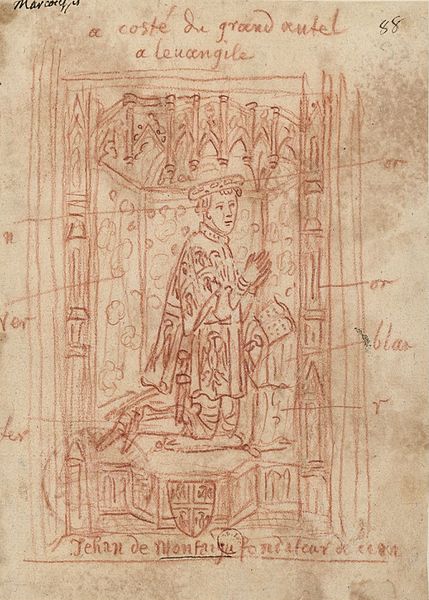 Marcoussis
88
a costé du grand autel
a leuangile
or
or
blan
r
Jehan de Montaigu fondateur de ceans